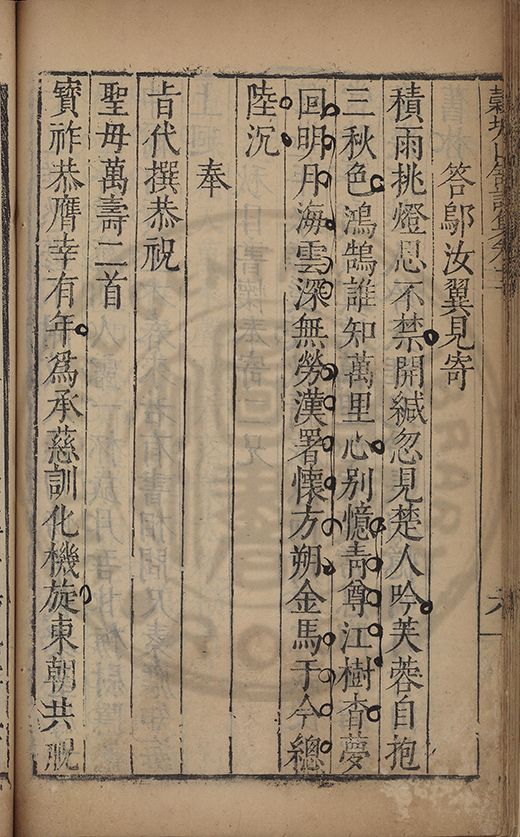 答鄔汝翼見寄
積雨挑燈思不禁開緘忽見楚人吟芙蓉自抱
三秋色鴻鵠誰知萬里心別憶青尊江樹杳夢
回明月海雲深無勞漢署懷方朔金馬于今總
陸沉
奉
旨代撰恭祝
聖母萬壽二首
寶祚恭膺幸有年為承慈訓化機旋東朝共祝